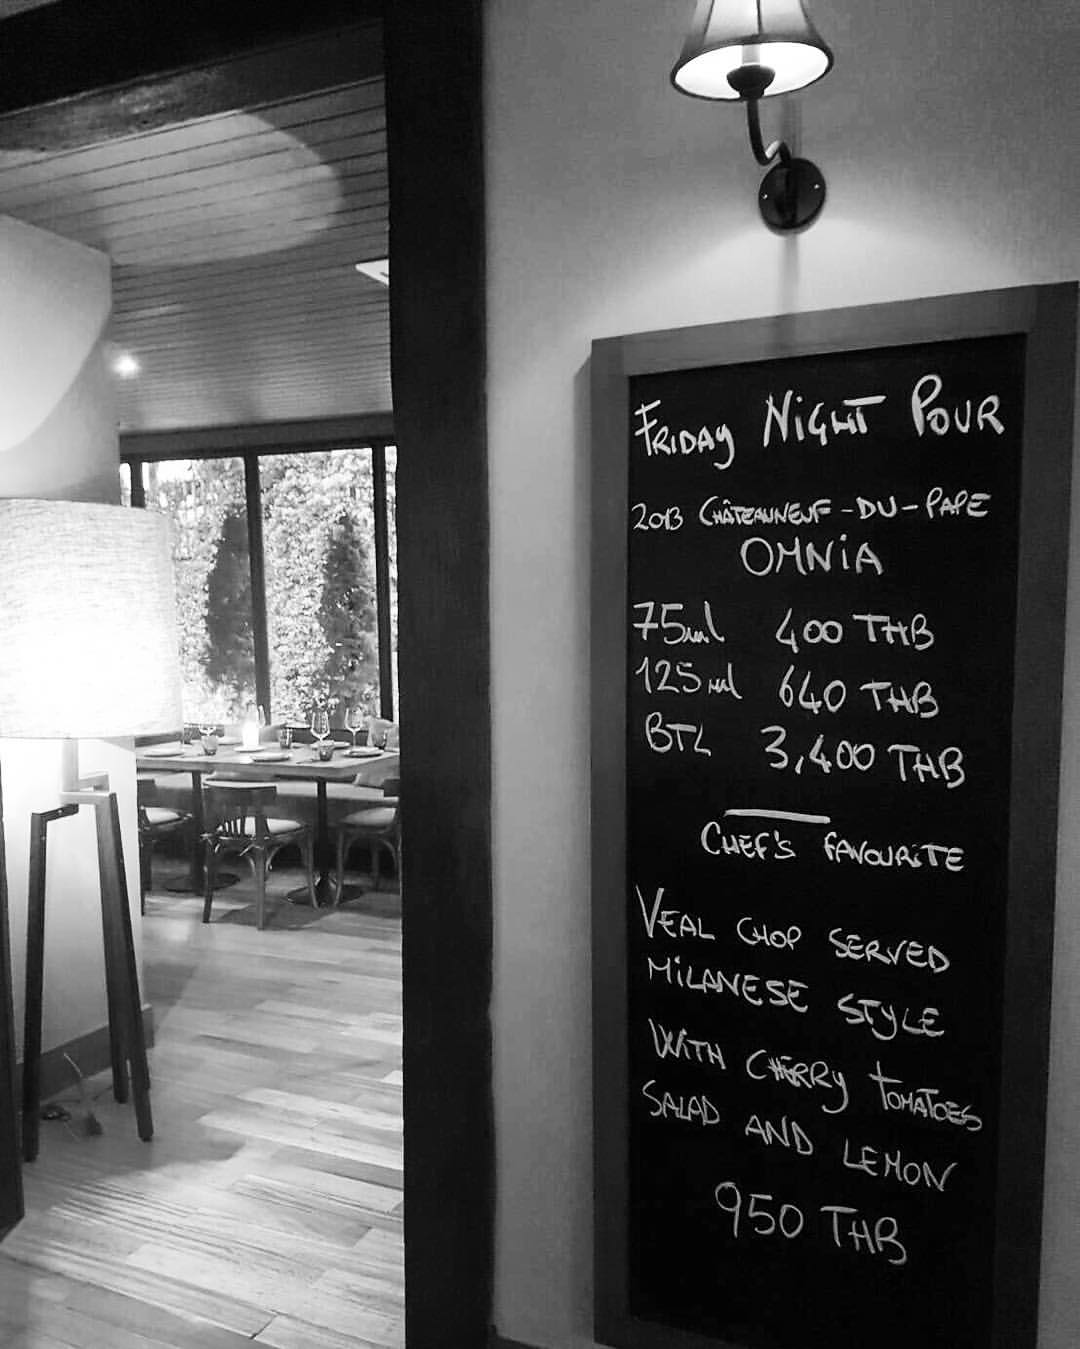 FRIDAY NIGHT POUR
2013 CHÂTEAUNEUF-DU-PAPE
OMNiA
75ml 400 THB
125ml 640 THB
BTL 3,400 THB
CHEF'S FAVOURiTE
VEAL CHOP SERVED
MiLANESE STYLE
WiTH CHERRy TOMATOES
SALAD AND LEMON
950 THB